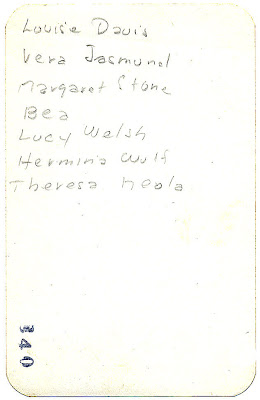 Louise Davis
Vera Jasmund
Margaret Stone
Bea
Lucy Welsh
Hermina Wulf
Theresa Neola
340